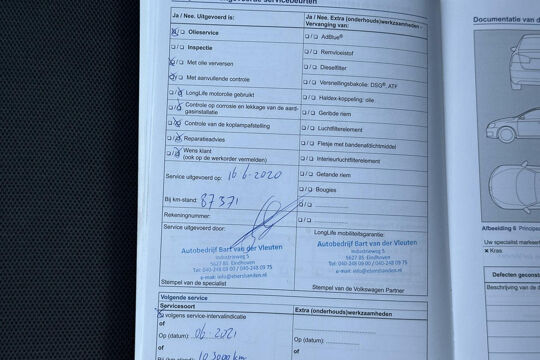 Ja / Nee. Uitgevoerd is:
Olieservice
Inspectie
Met olie verversen
Met aanvullende controle
LongLife motorolie gebruikt
Controle op corrosie en lekkage van de aard-
gasinstallatie
Controle van de koplampafstelling
Reparatieadvies
Wens klant
(ook op de werkorder vermelden)
Service uitgevoerd op: 16 6-2020
Bij km-stand: 87371
Rekeningnummer:
Service uitgevoerd door:
Autobedrijf Bart van der Vleuten
Industrieweg 5
5627 BS Eindhoven
Tel: 040-248 09 00 / 040-248 09 75
Stempel van de specialist
Ja / Nee. Extra (onderhouds)werkzaamheden -
Vervanging van:
AdBlue®
Remvloeistof
Dieselfilter
Versnellingsbakolie: DSG®, ATF
Haldex-koppeling: olie
Geribde riem
Luchtfilterelement
Flesje met bandenafdichtmiddel
Interieurluchtfilterelement
Getande riem
Bougies
LongLife mobiliteitsgarantie:
Autobedrijf Bart van der Vleuten
Industrieweg 5
5627 BS Eindhoven
Tel: 040-248 09 00 / 040-248 09 75
Stempel van de Volkswagen Partner
Volgende service
Servicesoort
volgens service-intervalindicatie
of
Op (datum): 06-2021
of
Extra (onderhouds)werkzaamheden
Op (datum):
of
Documentatie van d
Afbeelding 6 Principes
Uw specialist markeer
Kras
Defecten geconst
Beschrijving van de